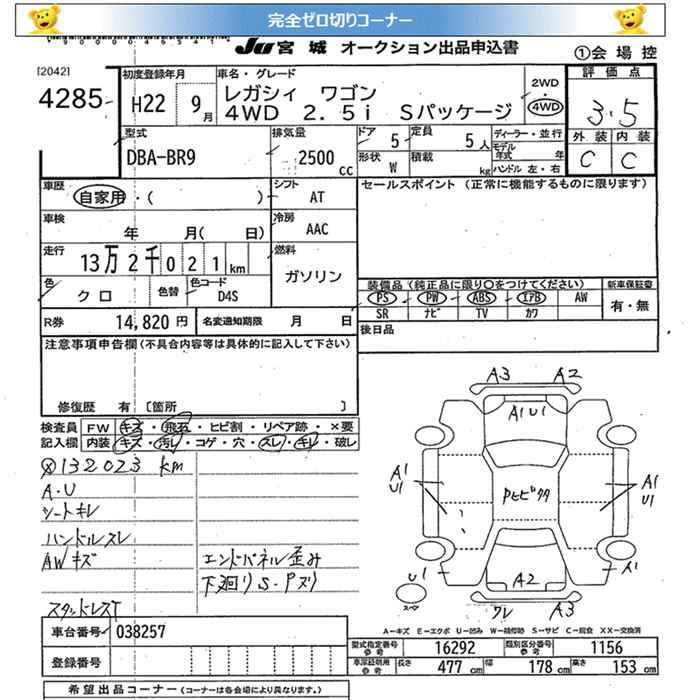 完全ゼロ切りコーナー
JU 宮城 オークション出品申込書
①会場控
[2042]
4285
初度登録年月
H22 9月
車名・グレード
レガシィ ワゴン
4WD 2.5i Sパッケージ
2WD
・
4WD
評価点
3.5
外装 内装
C C
型式
DBA-BR9
排気量
2500 cc
ドア 5
定員 5人
形状 W
積載 kg
ディーラー・並行
モデル年式 年
ハンドル 左・右
車歴
自家用・( )
シフト
AT
セールスポイント (正常に機能するものに限ります)
車検
年 月( 日)
冷房
AAC
走行
13万2千021km
燃料
ガソリン
色
クロ
色替
色コード
D4S
装備品 (純正品に限り○をつけてください)
PS PW ABS エアB AW
SR ナビ TV カワ
新車保証書
有・無
R券 14,820円
名変通知期限 月 日
後日品
注意事項申告欄 (不具合内容等は具体的に記入して下さい)
修復歴 有 〔箇所 〕
検査員 FW キズ・飛石・ヒビ割・リペア跡・×要
記入欄 内装 キズ・汚レ・コゲ・穴・スレ・キレ・破レ
132023 km
A・U
シートキレ
ハンドルスレ
AWキズ
エンドパネル歪み
下廻りS・Pズリ
スタッドレスT
A3 A2
A1U1
A1
U1
A1
U1
U1
A1
A2
A3
スペア
A-キズ E-エクボ U-凹み W-補修跡 S-サビ C-腐食 XX-交換済
車台番号 038257
登録番号
型式指定番号 参考 16292
類別区分番号 参考 1156
車庫証明用 参考 長さ 477 cm 幅 178 cm 高さ 153 cm
希望出品コーナー (コーナーは各会場により異なります。)